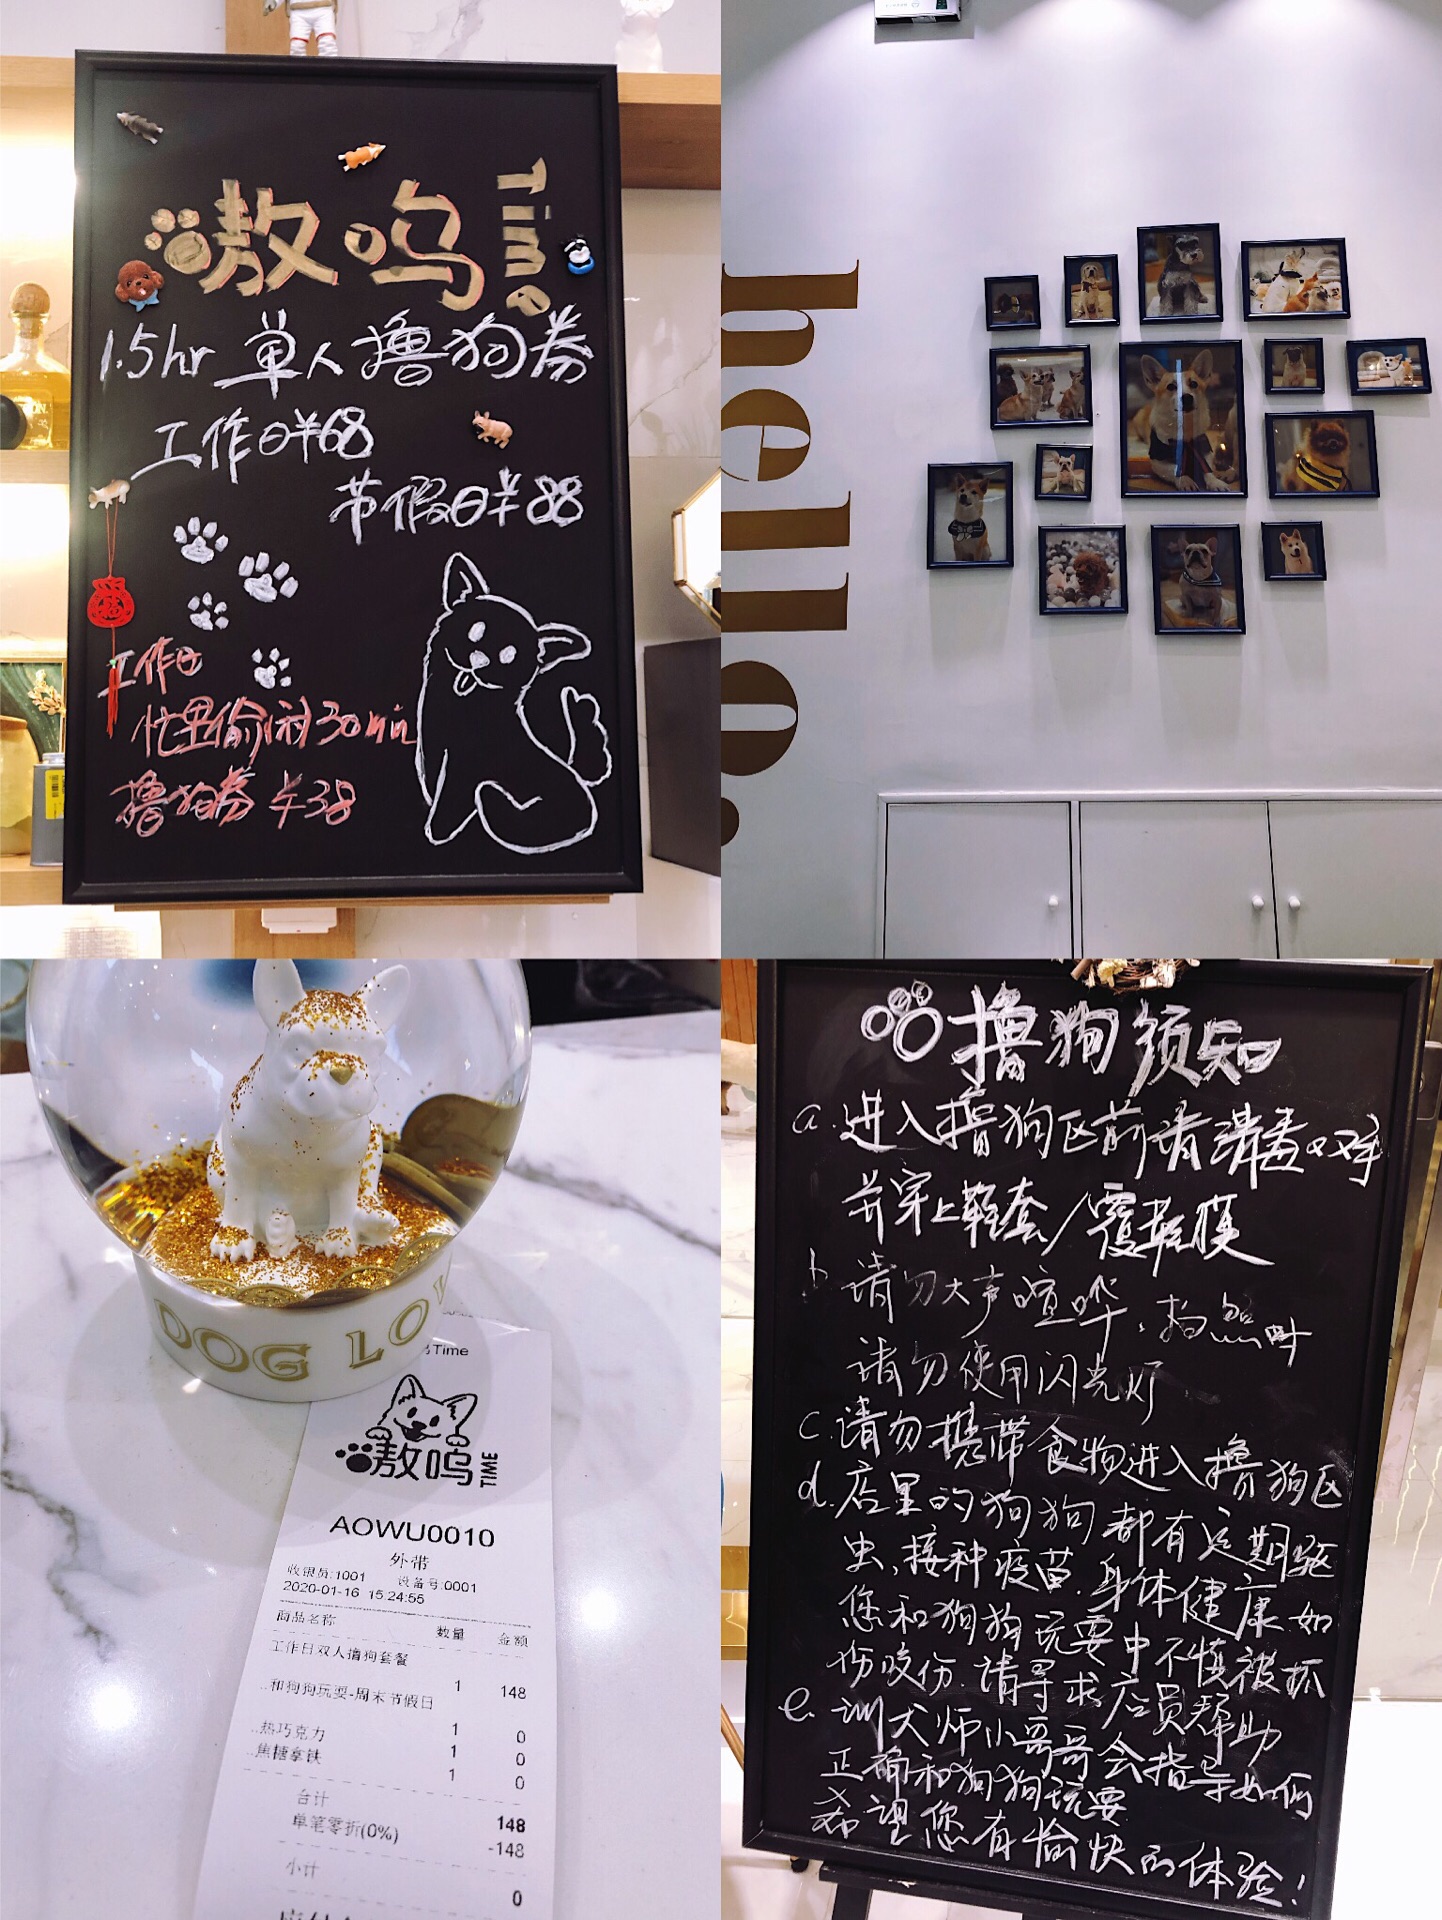 嗷呜
Time
1.5hr 单人撸狗券
工作日¥68
节假日¥88
工作日
忙里偷闲30min
撸狗券 ¥38
hello.
DOG LO
Time
嗷呜 TIME
AOWU0010
外带
收银员:1001 设备号:0001
2020-01-16 15:24:55
商品名称 数量 金额
工作日双人撸狗套餐
1 148
..和狗狗玩耍-周末节假日
1 0
..热巧克力
1 0
..焦糖拿铁
1 0
合计 148
单笔零折(0%) -148
小计 0
撸狗须知
a.进入撸狗区前请消毒双手
并穿上鞋套/覆鞋膜
b.请勿大声喧哗,拍照时
请勿使用闪光灯
c.请勿携带食物进入撸狗区
d.店里的狗狗都有定期驱
虫,接种疫苗.身体健康.如
您和狗狗玩耍中不慎被抓
伤咬伤.请寻求店员帮助
e.训犬师小哥哥会指导如何
正确和狗狗玩耍
希望您有愉快的体验!